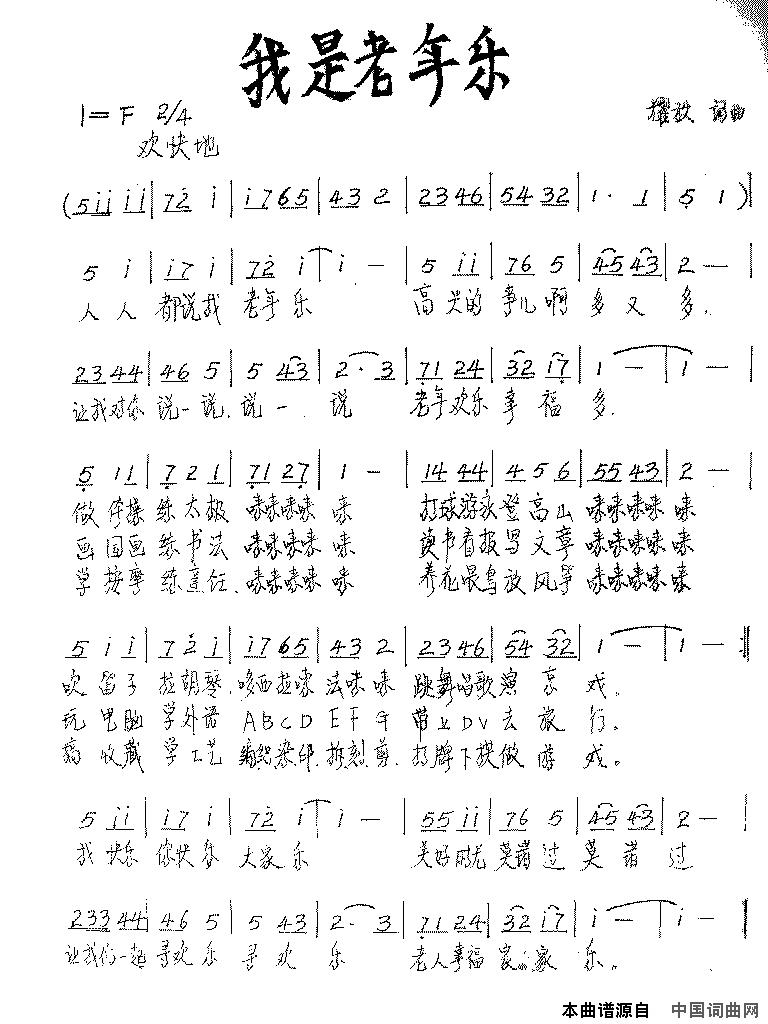 我是老年乐
1=F 2/4
词曲
欢快地
(5ii ii|72 i|i7 65|43 2|23 46|54 32|1· 1|5 1)|
5 i|i7 i|72 i|i —|5 ii|76 5|45 43|2 —|
人人 都说我 老年乐 高兴的 事儿啊 多又多.
23 44|46 5|5 43|2· 3|71 24|32 17|1 —|1 —|
让我对你 说一说, 说一说 老年欢乐 幸福多.
5 11|7 2 1|71 27|1 —|14 44|4 5 6|55 43|2 —|
做体操 练太极 咪咪咪咪 咪 打球游泳 登高山 咪咪咪咪 咪
画国画 练书法 咪咪咪咪 咪 读书看报 写文章 咪咪咪咪 咪
学按摩 练烹饪, 咪咪咪咪 咪 养花喂鸟 放风筝 咪咪咪咪 咪
5 i i|7 2 i|i7 65|43 2|23 46|54 32|1 —|1 —:|
吹笛子 拉胡琴, 哆西拉 法咪咪 跳舞唱歌 演京戏.
玩电脑 学外语 ABCD EFG 带上DV去旅行。
搞收藏 学工艺 编织 打牌下棋做游戏。
5 ii|i7 i|72 i|i —|55 ii|76 5|45 43|2 —|
我快乐 你快乐 大家乐 美好时光 莫蹉过 莫蹉过
233 44|46 5|5 43|2· 3|71 24|32 i7|i —|i —|
让我们一起 寻欢乐 寻欢乐 老人幸福 家家乐。
本曲谱源自 中国词曲网